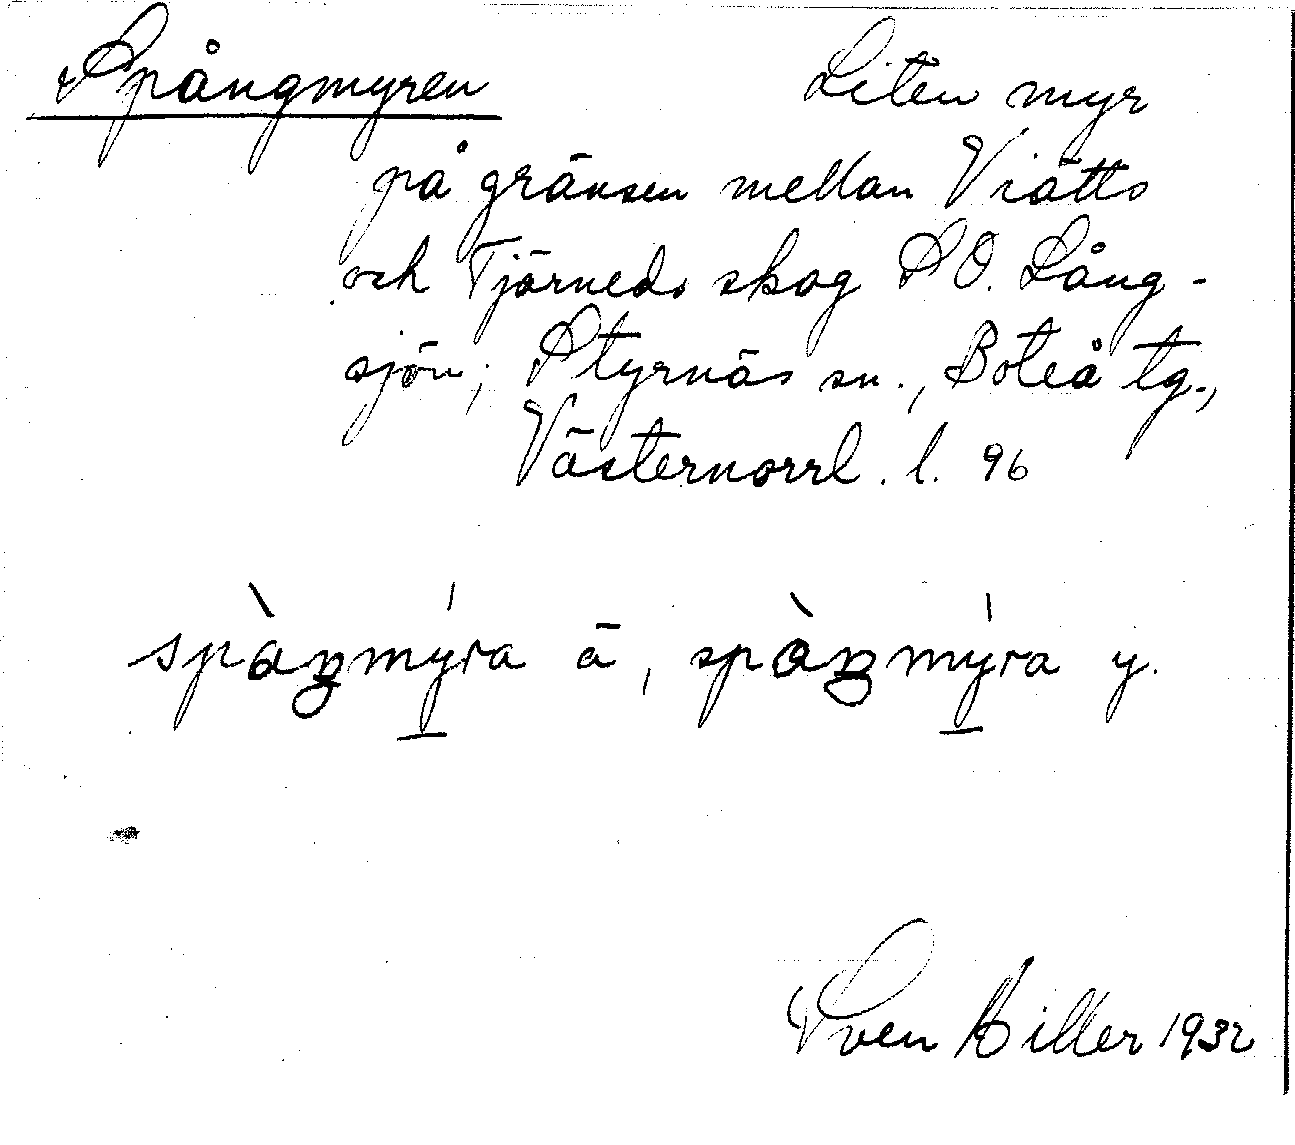 Spångmyren Liten myr
på gränsen mellan Viätts
och Tjärneds skog SO. Lång-
sjön; Styrnäs sn., Boteå tg.,
Västernorrl. l. 96
spàŋmýra ä, spàŋmýra y.
Sven Hiller 1932